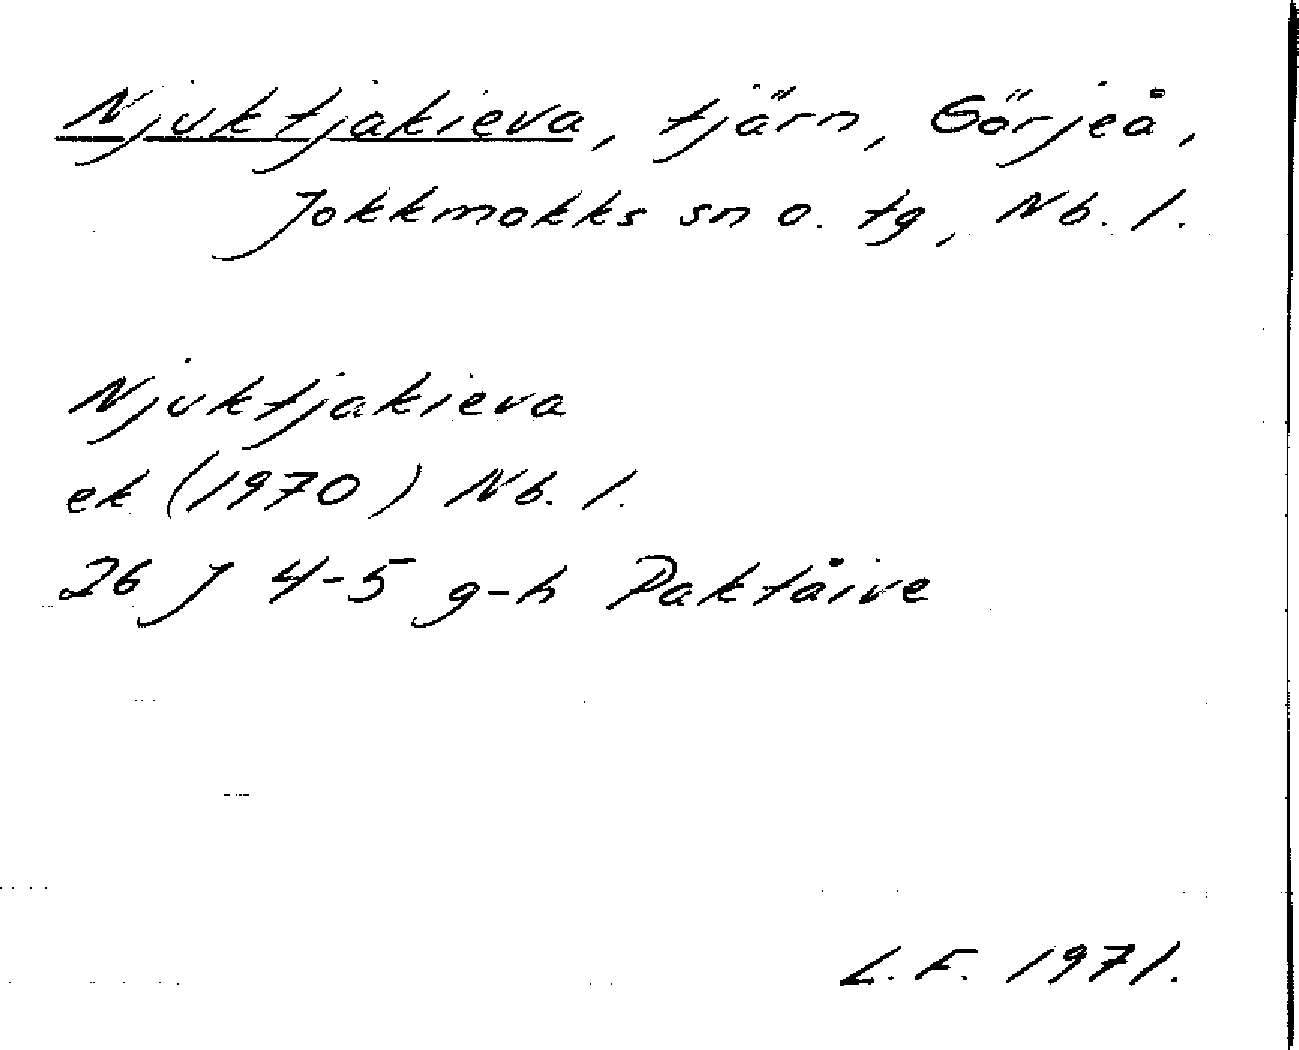 Njuktjakieva, tjärn, Görjeå,
Jokkmokks sn o. tg, Nb. l.
Njuktjakieva
ek (1970) Nb. l.
26 J 4-5 g-h Paktåive
L. F. 1971.